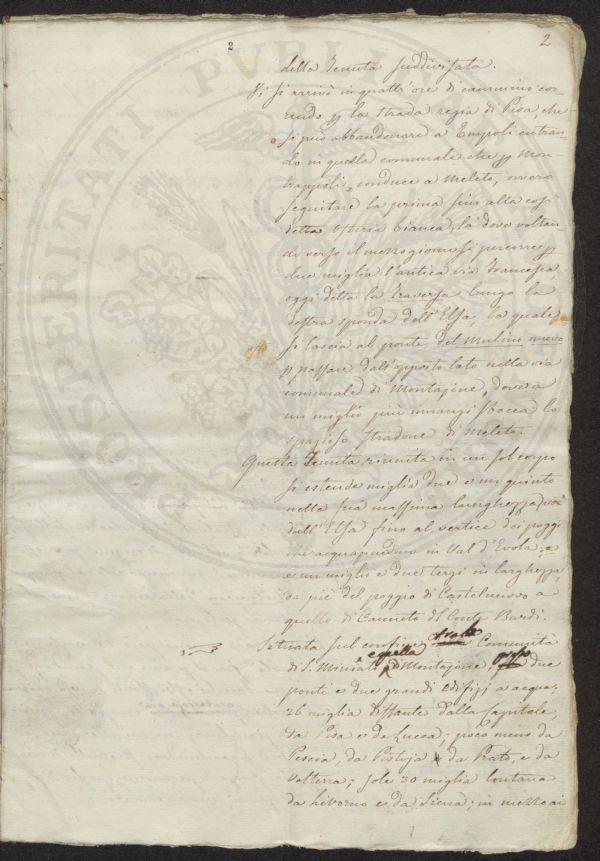 2
2
della Tenuta suddivisata.
Vi si arriva in quatt'ore di cammino cor-
rendo p la strada regia di Pisa, che
si può abbandonare a Empoli entran-
do in quella comunale che p Mon-
trappoli conduce a Meleto, ovvero
seguitare la prima fino alla così
detta Osteria bianca, là dove voltan-
do verso il mezzogiorno si percorre p
due miglia l'antica via Francesca
oggi detta la Traversa lungo la
destra sponda dell'Elsa, la quale
si lascia al ponte del Mulino nuovo
p passare dall'opposto lato nella via
comunale di Montajone, dove a
un miglio più innanzi sbocca lo
spazioso stradone di Meleto.
Questa Tenuta riunita in un sol corpo
si estende miglia due e un quinto
nella sua massima lunghezza,
dall'Elsa fino al vertice dei poggi
che acquapendono in Val d'Evola; e
e un miglio e due terzi in larghezza,
da piè del poggio di Castelnuovo a
quello di Canneto del Conte Bardi.
Situata sul confine tralla Comunità
di S. Miniato e quella di Montajone, presso due
ponti e due grandi edifizj a acqua;
26 miglia distante dalla Capitale,
da Pisa e da Lucca; poco meno da
Pescia, da Pistoja da Prato, e da
Volterra; sole 30 miglia lontana
da Livorno e da Siena; in mezzo ai
PROSPERITATI PUBLI